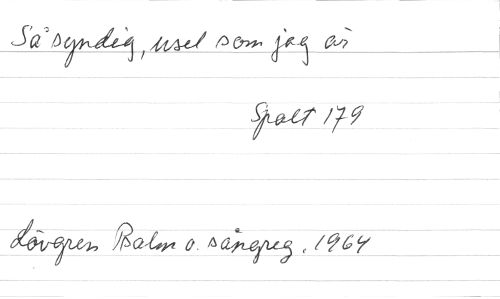 Så syndig, usel som jag är
Spalt 179
Lövgren Psalm o. sångreg. 1964